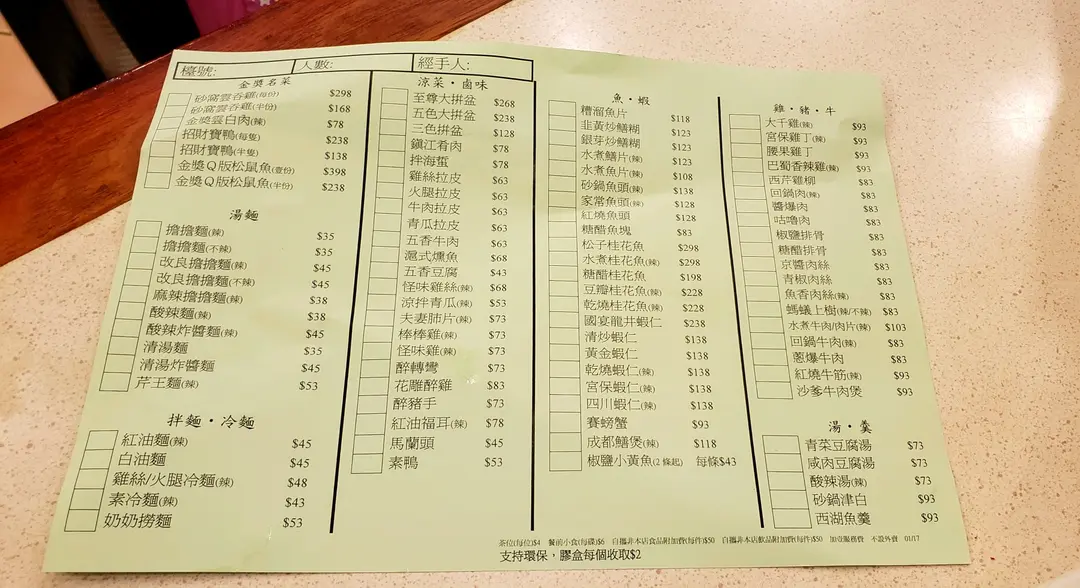 檯號:
人數:
經手人:
金獎名菜
砂窩雲吞雞(每份) $298
砂窩雲吞雞(半份) $168
金獎雲白肉(辣) $78
招財寶鴨(每隻) $238
招財寶鴨(半隻) $138
金獎Q版松鼠魚(壹份) $398
金獎Q版松鼠魚(半份) $238
湯麵
擔擔麵(辣) $35
擔擔麵(不辣) $35
改良擔擔麵(辣) $45
改良擔擔麵(不辣) $45
麻辣擔擔麵(辣) $38
酸辣麵(辣) $38
酸辣炸醬麵(辣) $45
清湯麵 $35
清湯炸醬麵 $45
芹王麵(辣) $53
拌麵・冷麵
紅油麵(辣) $45
白油麵 $45
雞絲/火腿冷麵(辣) $48
素冷麵(辣) $43
奶奶撈麵 $53
涼菜・鹵味
至尊大拼盆 $268
五色大拼盆 $238
三色拼盆 $128
鎮江肴肉 $78
拌海蜇 $78
雞絲拉皮 $63
火腿拉皮 $63
牛肉拉皮 $63
青瓜拉皮 $63
五香牛肉 $63
滬式燻魚 $68
五香豆腐 $43
怪味雞絲(辣) $68
涼拌青瓜(辣) $53
夫妻肺片(辣) $73
棒棒雞(辣) $73
怪味雞(辣) $73
醉轉彎 $73
花雕醉雞 $83
醉豬手 $73
紅油福耳(辣) $78
馬蘭頭 $45
素鴨 $53
魚・蝦
糟溜魚片 $118
韭黃炒鱔糊 $123
銀芽炒鱔糊 $123
水煮鱔片(辣) $123
水煮魚片(辣) $108
砂鍋魚頭(辣) $138
家常魚頭(辣) $128
紅燒魚頭 $128
糖醋魚塊 $83
松子桂花魚 $298
水煮桂花魚(辣) $298
糖醋桂花魚 $198
豆瓣桂花魚(辣) $228
乾燒桂花魚(辣) $228
國宴龍井蝦仁 $238
清炒蝦仁 $138
黃金蝦仁 $138
乾燒蝦仁(辣) $138
宮保蝦仁(辣) $138
四川蝦仁(辣) $138
賽螃蟹 $93
成都鱔煲(辣) $118
椒鹽小黃魚(2條起) 每條$43
雞・豬・牛
大千雞(辣) $93
宮保雞丁(辣) $93
腰果雞丁 $93
巴蜀香辣雞(辣) $93
西芹雞柳 $83
回鍋肉(辣) $83
醬爆肉 $83
咕嚕肉 $83
椒鹽排骨 $83
糖醋排骨 $83
京醬肉絲 $83
青椒肉絲 $83
魚香肉絲(辣) $83
螞蟻上樹(辣/不辣) $83
水煮牛肉/肉片(辣) $103
回鍋牛肉(辣) $83
蔥爆牛肉 $83
紅燒牛筋(辣) $93
沙爹牛肉煲 $93
湯・羹
青菜豆腐湯 $73
咸肉豆腐湯 $73
酸辣湯(辣) $73
砂鍋津白 $93
西湖魚羹 $93
茶位(每位)$4 餐前小食(每碟)$6 自攜非本店食品附加費(每件)$50 自攜非本店飲品附加費(每件)$50 加壹服務費 不設外賣 01/17
支持環保，膠盒每個收取$2